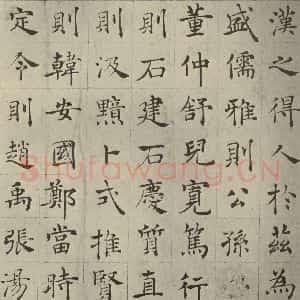 漢之得人於茲為
盛儒雅則公孫弘
董仲舒兒寬篤行
則石建石慶質直
則汲黯卜式推賢
則韓安國鄭當時
定令則趙禹張湯
Shufawang.CN